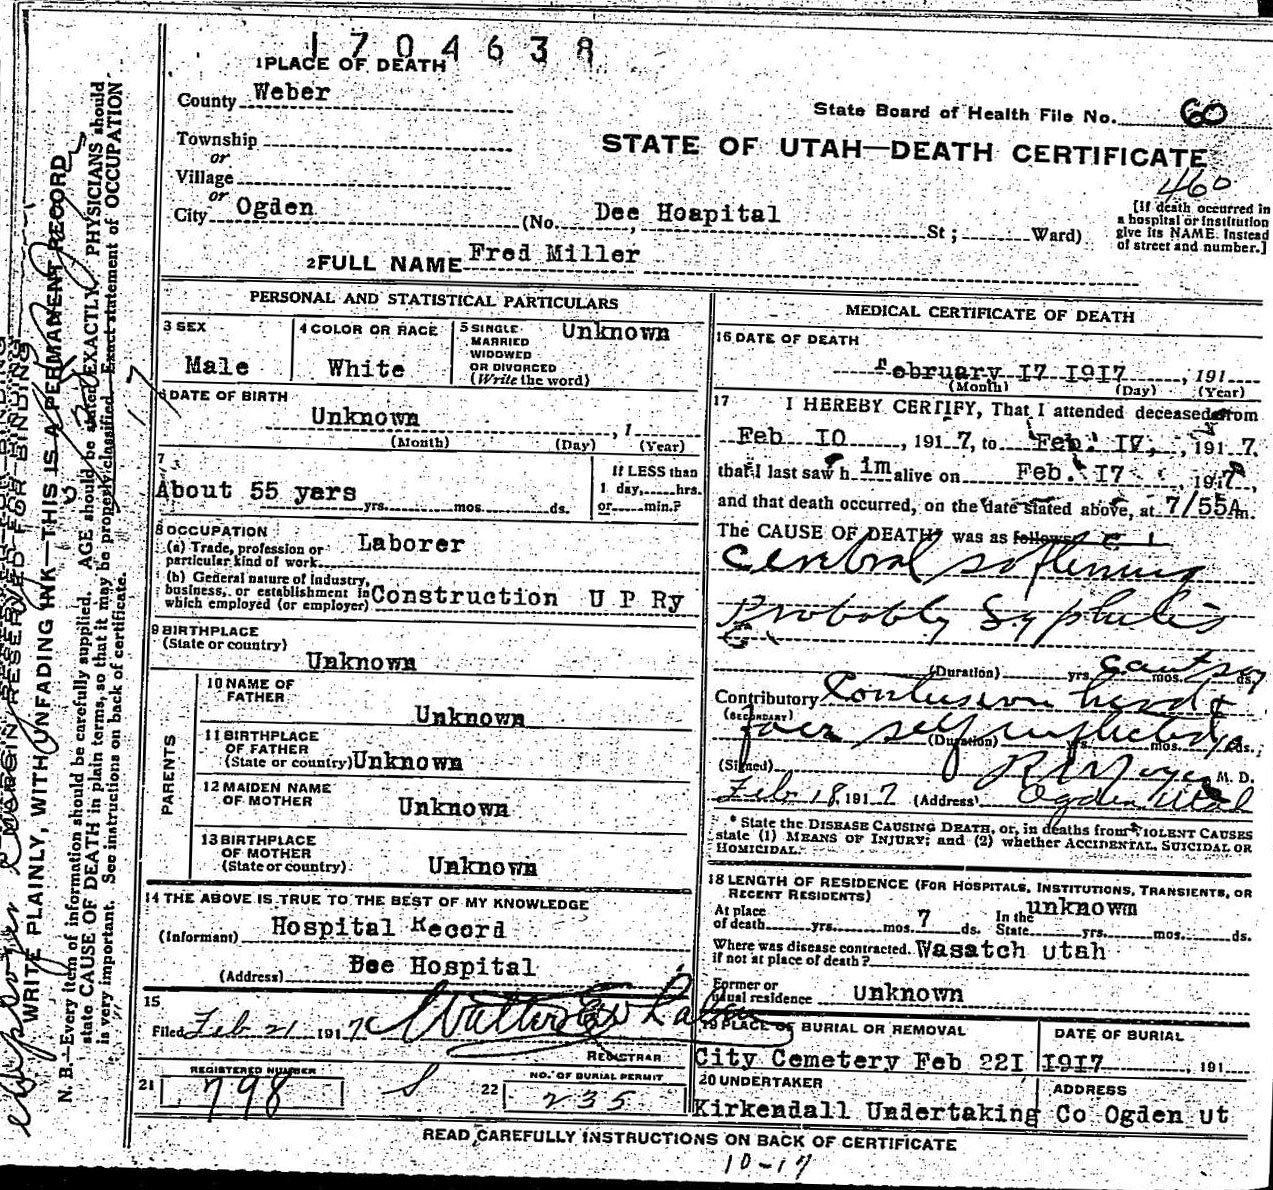 1704638
1 PLACE OF DEATH
County Weber
State Board of Health File No. 60
Township
or
Village
or
City Ogden
STATE OF UTAH—DEATH CERTIFICATE
460
(No. Dee Hospital St; Ward)
[If death occurred in
a hospital or institution
give its NAME. instead
of street and number.]
2 FULL NAME Fred Miller
PERSONAL AND STATISTICAL PARTICULARS
3 SEX
Male
4 COLOR OR RACE
White
5 SINGLE
MARRIED
WIDOWED
OR DIVORCED
(Write the word)
Unknown
6 DATE OF BIRTH
Unknown , 1
(Month) (Day) (Year)
7
About 55 yars
yrs. mos. ds.
If LESS than
1 day, hrs.
or min.?
8 OCCUPATION
(a) Trade, profession or
particular kind of work Laborer
(b) General nature of Industry,
business, or establishment in
which employed (or employer) Construction U P Ry
9 BIRTHPLACE
(State or country)
Unknown
PARENTS
10 NAME OF
FATHER
Unknown
11 BIRTHPLACE
OF FATHER
(State or country) Unknown
12 MAIDEN NAME
OF MOTHER
Unknown
13 BIRTHPLACE
OF MOTHER
(State or country)
Unknown
14 THE ABOVE IS TRUE TO THE BEST OF MY KNOWLEDGE
(Informant) Hospital Record
(Address) Dee Hospital
15
Filed Feb 21 1917
REGISTRAR
21 REGISTERED NUMBER
798
22 NO. OF BURIAL PERMIT
235
MEDICAL CERTIFICATE OF DEATH
16 DATE OF DEATH
February I7 I9I7 , 191
(Month) (Day) (Year)
17 I HEREBY CERTIFY, That I attended deceased from
Feb IO , 191 7, to Feb. I7, , 191 7,
that I last saw h im alive on Feb. I7 191 7,
and that death occurred, on the date stated above, at 7/55A m.
The CAUSE OF DEATH* was as follows:
Cerebral softening
Probably Syphilis
(Duration) yrs. mos. ds.
Contributory Contusion head &
(SECONDARY)
face self inflicted
(Duration) yrs. mos. ds.
(Signed) M. D.
Feb 18, 1917 (Address) Ogden Utah
* State the DISEASE CAUSING DEATH, or, in deaths from VIOLENT CAUSES
state (1) MEANS OF INJURY; and (2) whether ACCIDENTAL, SUICIDAL OR
HOMICIDAL.
18 LENGTH OF RESIDENCE (FOR HOSPITALS, INSTITUTIONS, TRANSIENTS, OR
RECENT RESIDENTS)
At place
of death yrs. mos. 7 ds.
In the
State unknown yrs. mos. ds.
Where was disease contracted.
if not at place of death? Wasatch utah
Former or
usual residence unknown
19 PLACE OF BURIAL OR REMOVAL
City Cemetery Feb 22I
DATE OF BURIAL
I9I7 , 191
20 UNDERTAKER
Kirkendall Undertaking Co
ADDRESS
Ogden ut
READ CAREFULLY INSTRUCTIONS ON BACK OF CERTIFICATE
10-17
MARGIN RESERVED FOR BINDING
WRITE PLAINLY, WITH UNFADING INK—THIS IS A PERMANENT RECORD
N. B.—Every item of information should be carefully supplied. AGE should be stated EXACTLY. PHYSICIANS should
state CAUSE OF DEATH in plain terms, so that it may be properly classified. Exact statement of OCCUPATION
is very important. See instructions on back of certificate.